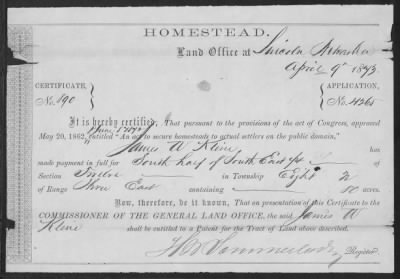 HOMESTEAD.
Land Office at Lincoln Nebraska
April 9th 1873
CERTIFICATE, APPLICATION,
No. 890 No. 4365
It is hereby certified, That pursuant to the provisions of the act of Congress, approved
May 20, 1862, entitled "An act to secure homesteads to actual settlers on the public domain,"
James W Kline has
made payment in full for South half of South East 1/4 of
Section Twelve in Township Eight N
of Range Three East containing 80 acres.
Now, therefore, be it known, That on presentation of this Certificate to the
COMMISSIONER OF THE GENERAL LAND OFFICE, the said James W
Kline shall be entitled to a Patent for the Tract of Land above described.
Register.